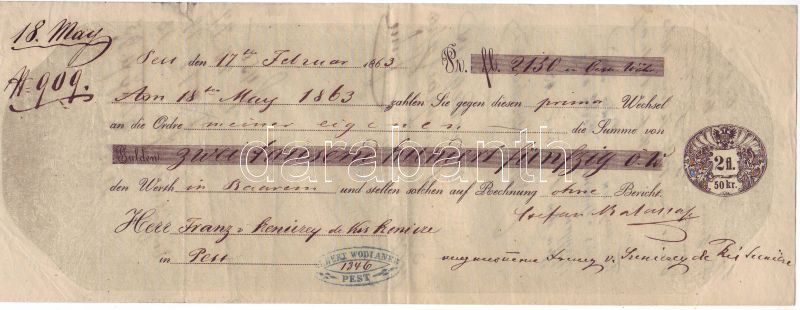 18. May
№ 909.
Pest den 17ten Februar 1863 Pr. fl. 2150 in Oest. Währ
Am 18ten May 1863 zahlen Sie gegen diesen prima Wechsel
an die Ordre meiner eigenen die Summe von
Gulden zwei tausend hundert fünfzig ö. W.
2 fl.
50 kr.
den Werth in Baarem und stellen solchen auf Rechnung ohne Bericht.
Herr Franz v Szeniczey de Kis Szenicze
in Pest
WODIANER
1346
PEST
Franz v. Szeniczey de Kis Szenicze
darabanth